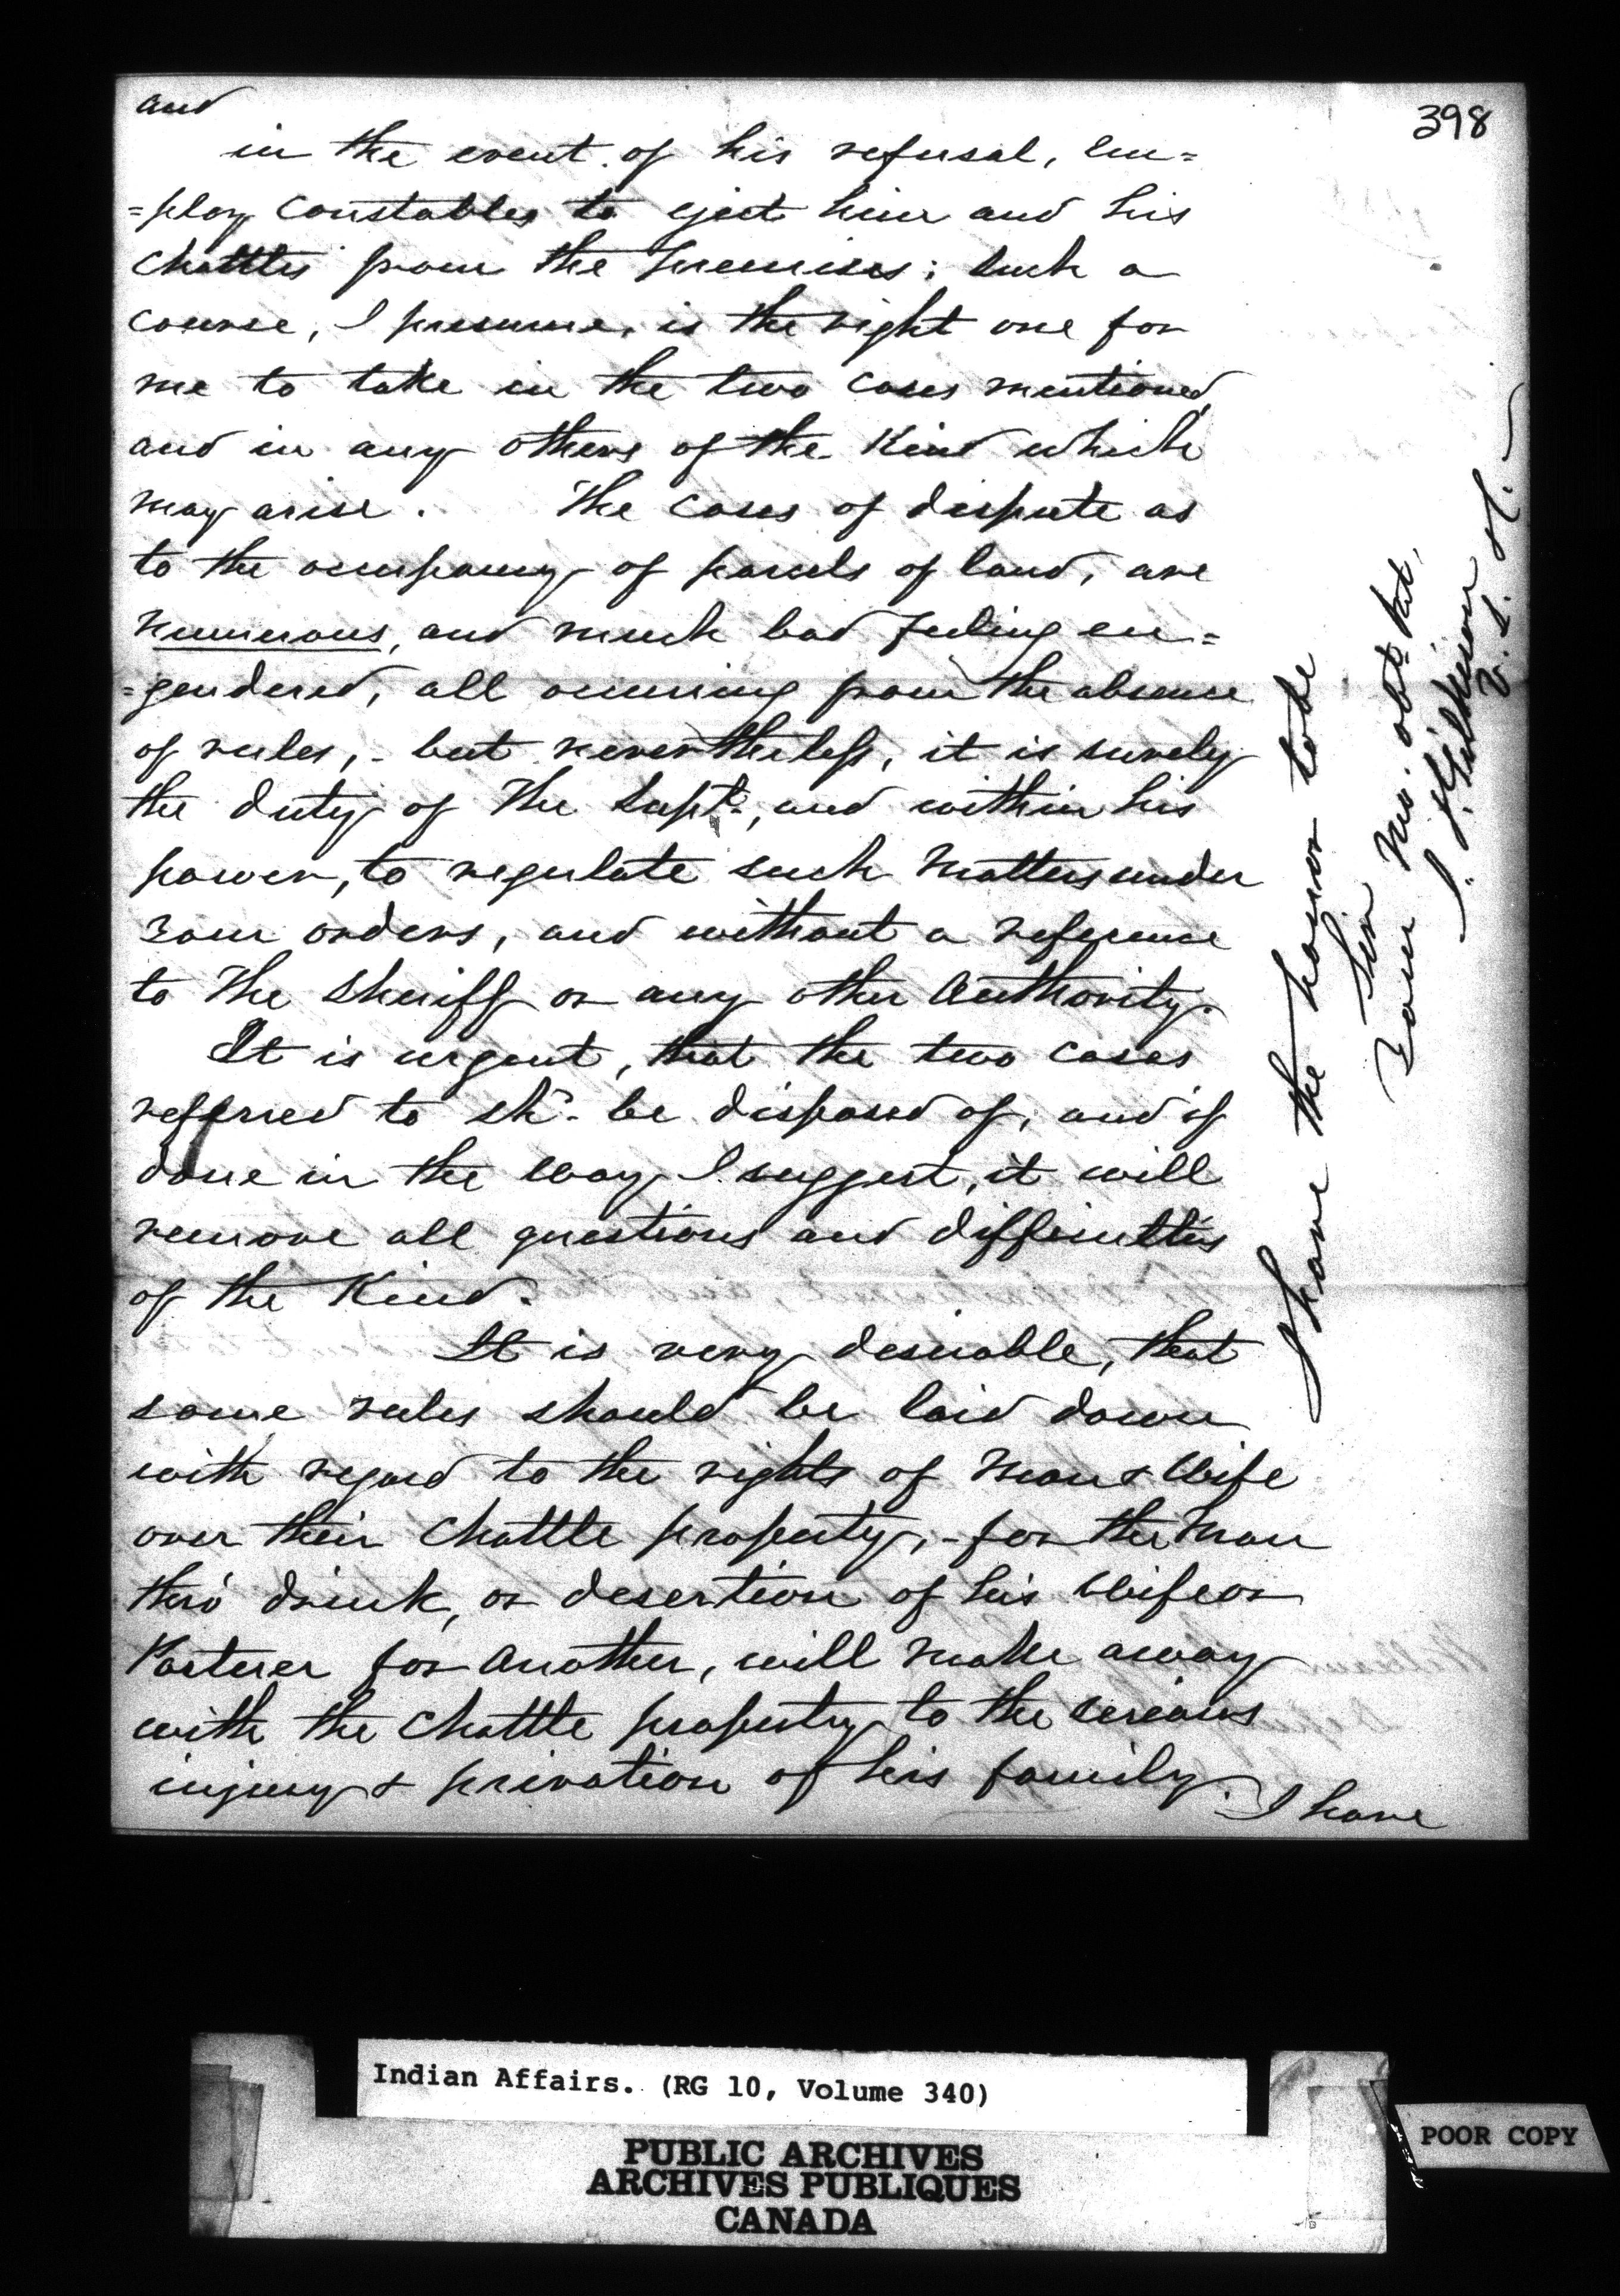 398
and
in the event of his refusal, em=
=ploy Constables to eject him and his
Chattles from the Premises; such a
course, I presume, is the right one for
me to take in the two cases mentioned,
and in any others of the Kind which
may arise. The cases of dispute as
to the occupancy of parcels of land, are
numerous, and much bad feeling en=
=gendered, all occuring from the absence
of rules, - but nevertheless, it is surely
the duty of the Supt., and within his
power, to regulate such matters under
your orders, and without a reference
to the Sheriff or any other Authority.
It is urgent, that the two cases
referred to shd. be disposed of, and if
done in the way I suggest, it will
remove all questions and difficulties
of the Kind.
It is very desirable, that
some rules should be laid down
with regard to the rights of Man & Wife
over their Chattle property, - for the Man
thro' drink, or desertion of his Wife or
Partner for Another, will make away
with the Chattle property to the serious
injury & privation of his family.
I have
I have the honor to be
Sir
Your mo. obt.
J. T. Gilkison
V. S. I.
Indian Affairs. (RG 10, Volume 340)
PUBLIC ARCHIVES
ARCHIVES PUBLIQUES
CANADA
POOR COPY